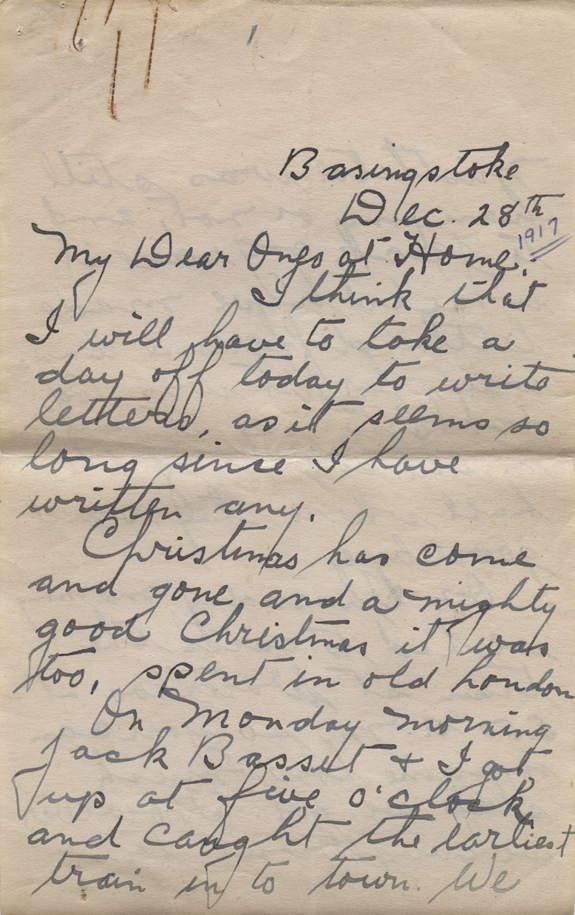 Basingstoke
Dec. 28th
1917
My Dear Ones at Home,
I think that
I will have to take a
day off today to write
letters, as it seems so
long since I have
written any.
Christmas has come
and gone and a mighty
good Christmas it was
too, spent in old London
On Monday morning
Jack Basset & I got
up at five o'clock
and caught the earliest
train in to town. We